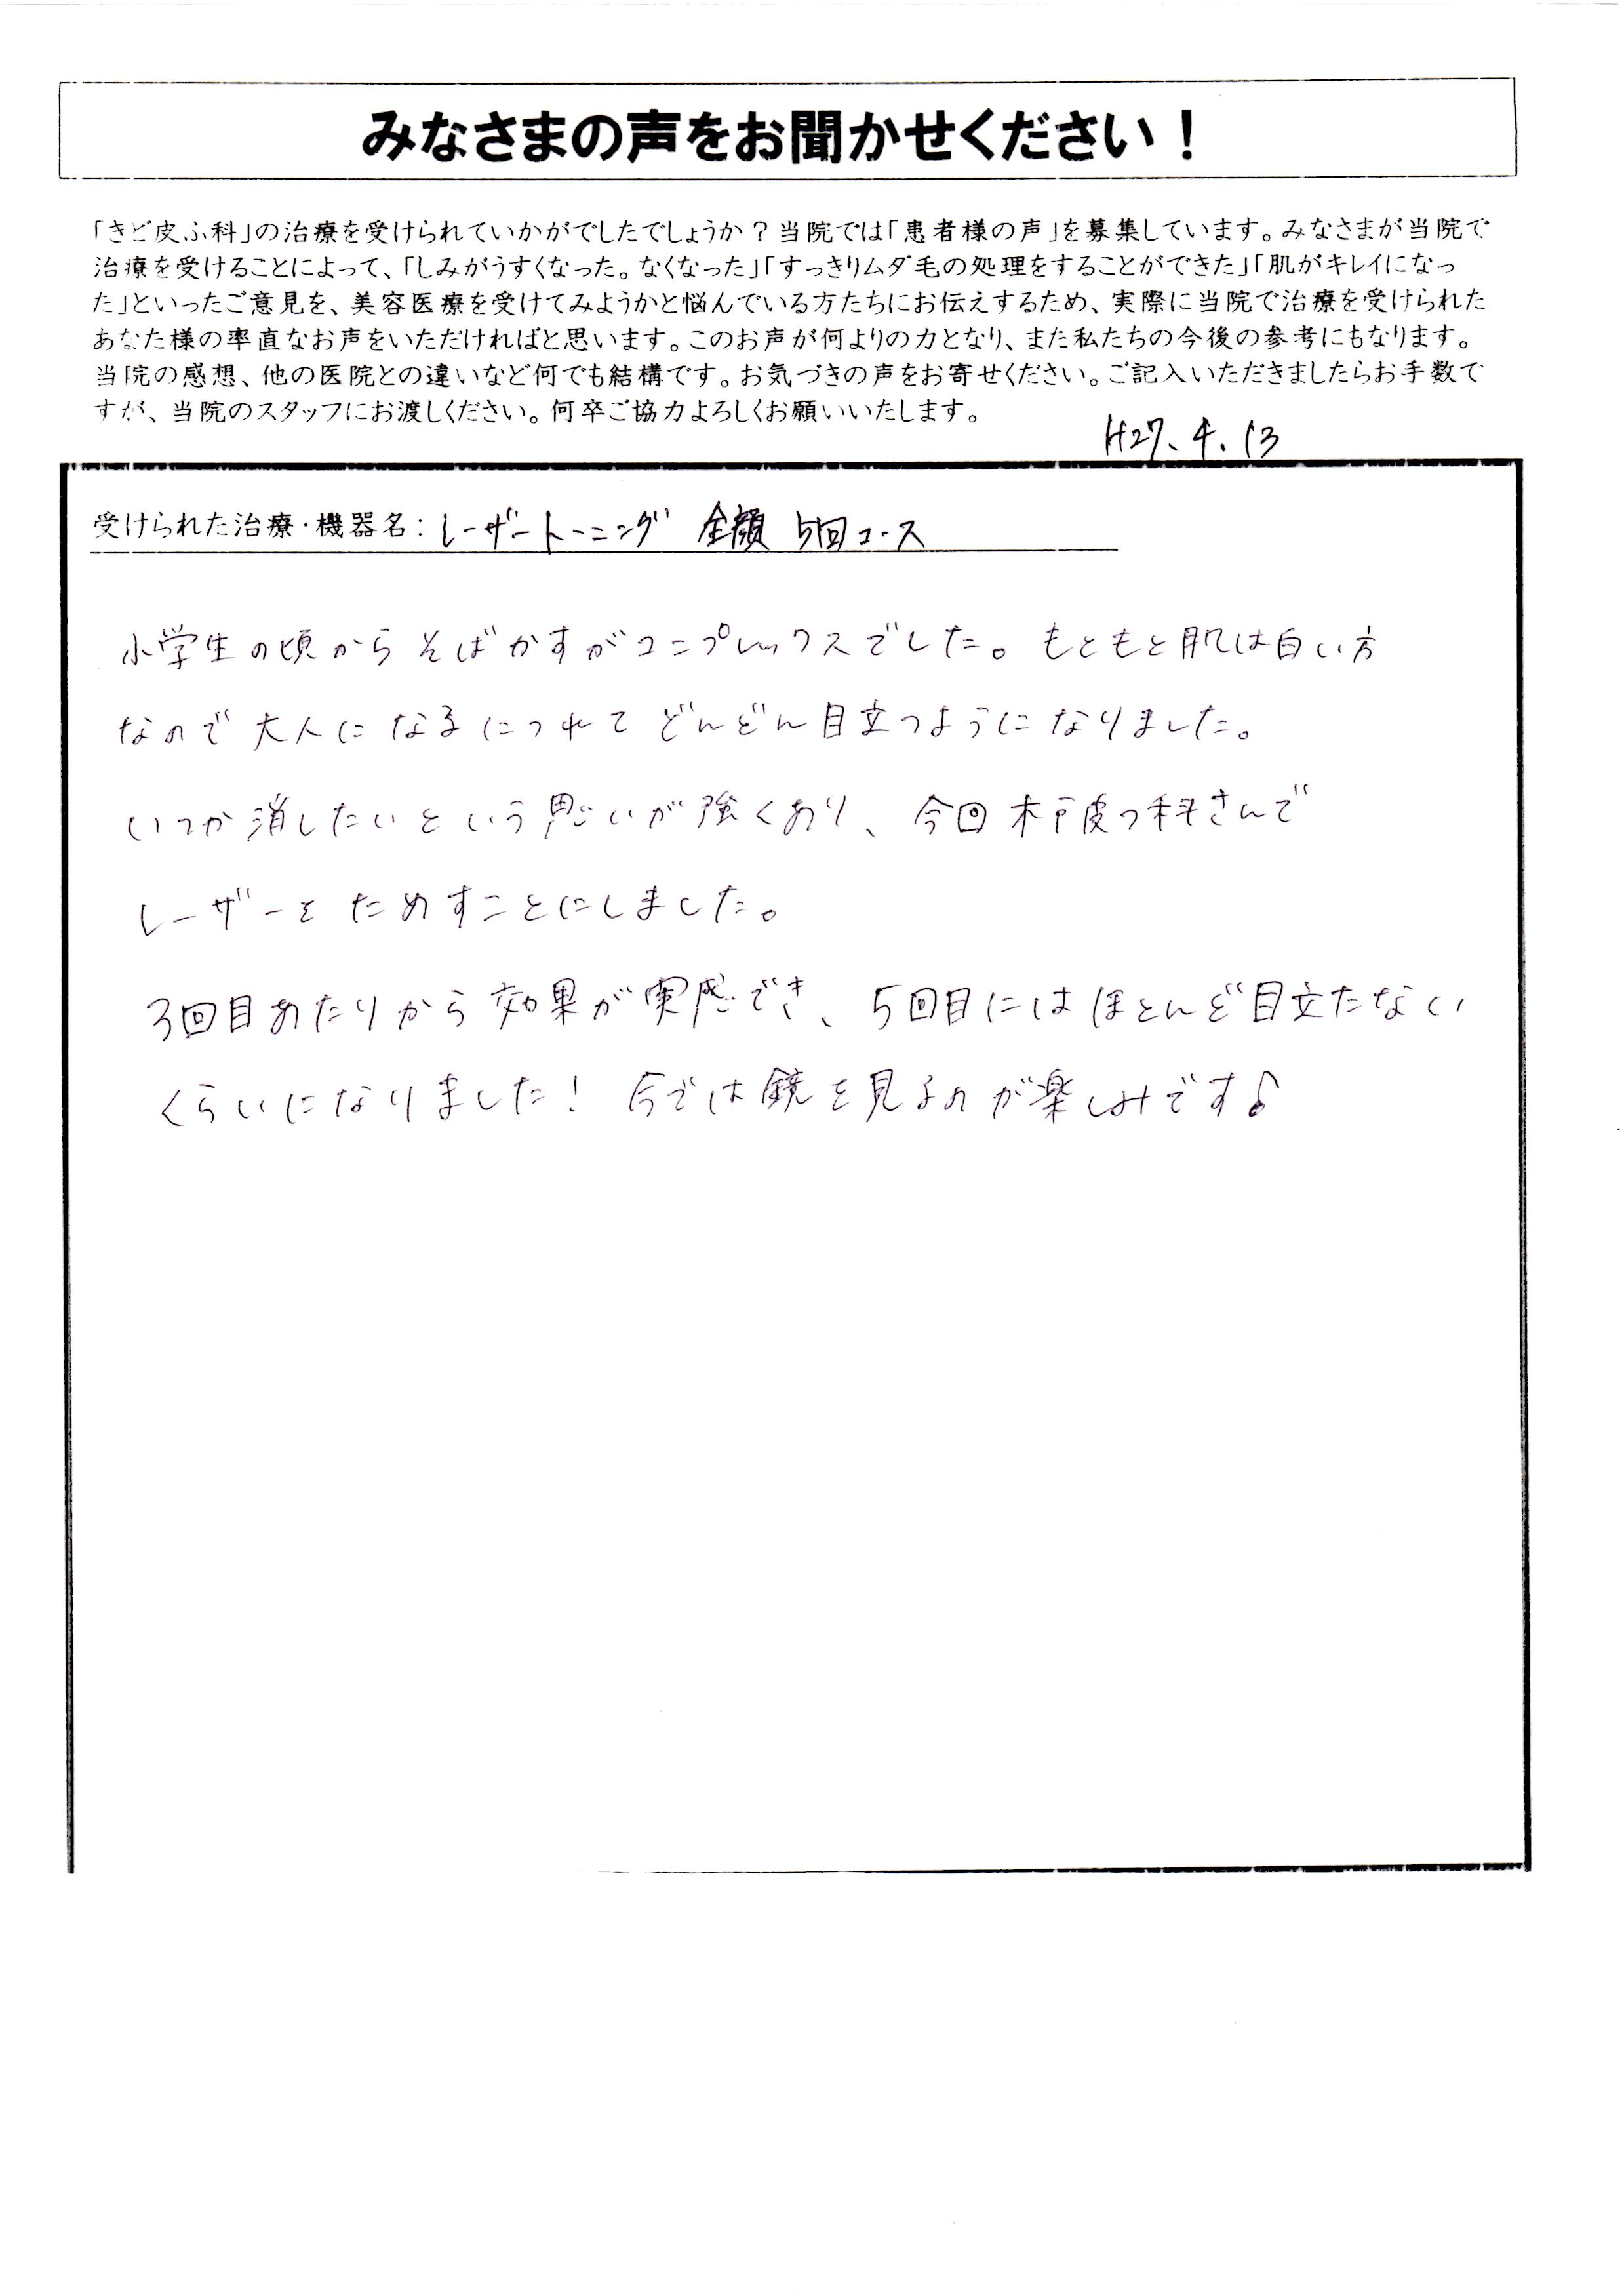 みなさまの声をお聞かせください！
「きど皮ふ科」の治療を受けられていかがでしたでしょうか？当院では「患者様の声」を募集しています。みなさまが当院で
治療を受けることによって、「しみがうすくなった。なくなった」「すっきりムダ毛の処理をすることができた」「肌がキレイになっ
た」といったご意見を、美容医療を受けてみようかと悩んでいる方たちにお伝えするため、実際に当院で治療を受けられた
あなた様の率直なお声をいただければと思います。このお声が何よりの力となり、また私たちの今後の参考にもなります。
当院の感想、他の医院との違いなど何でも結構です。お気づきの声をお寄せください。ご記入いただきましたらお手数で
すが、当院のスタッフにお渡しください。何卒ご協力よろしくお願いいたします。
H27.4.13
受けられた治療・機器名：レーザートーニング 全顔 5回コース
小学生の頃からそばかすがコンプレックスでした。もともと肌は白い方
なので大人になるにつれてどんどん目立つようになりました。
いつか消したいという思いが強くあり、今回木戸皮フ科さんで
レーザーをためすことにしました。
3回目あたりから効果が実感でき、5回目にはほとんど目立たない
くらいになりました！今では鏡を見るのが楽しみです♪